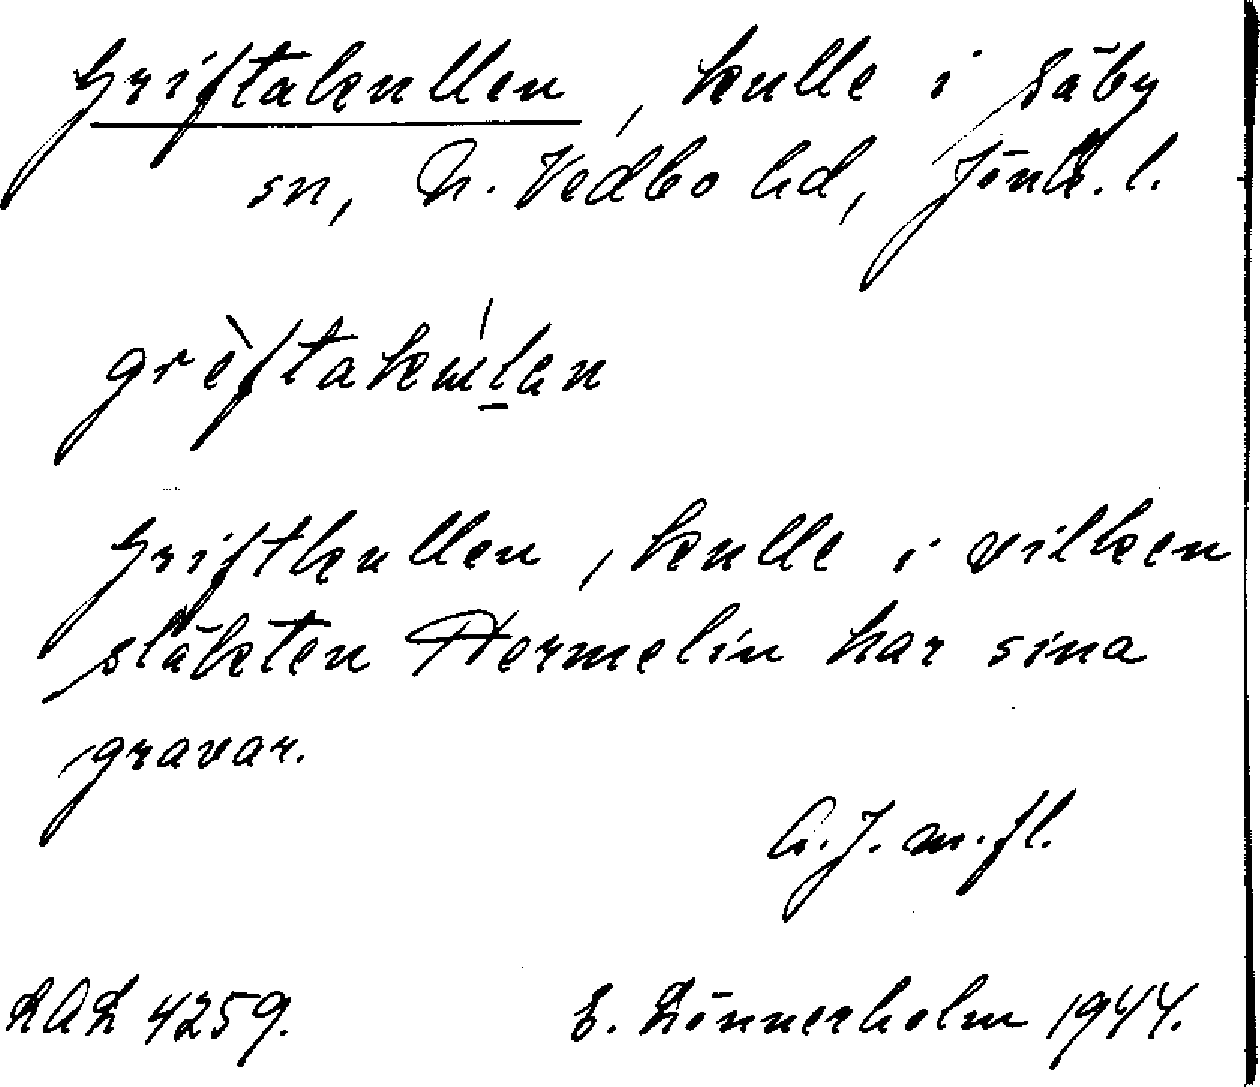 Griftakullen, kulle i Säby
sn, N. Vedbo hd, Jönk. l.
grèftakúlan
Griftkullen, kulle i vilken
släkten Hermelin har sina
gravar.
A.J. m.fl.
LAL 4259. E. Lönnerholm 1944.